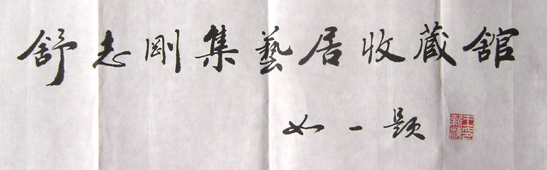 舒志剛集藝居收藏舘
如一題